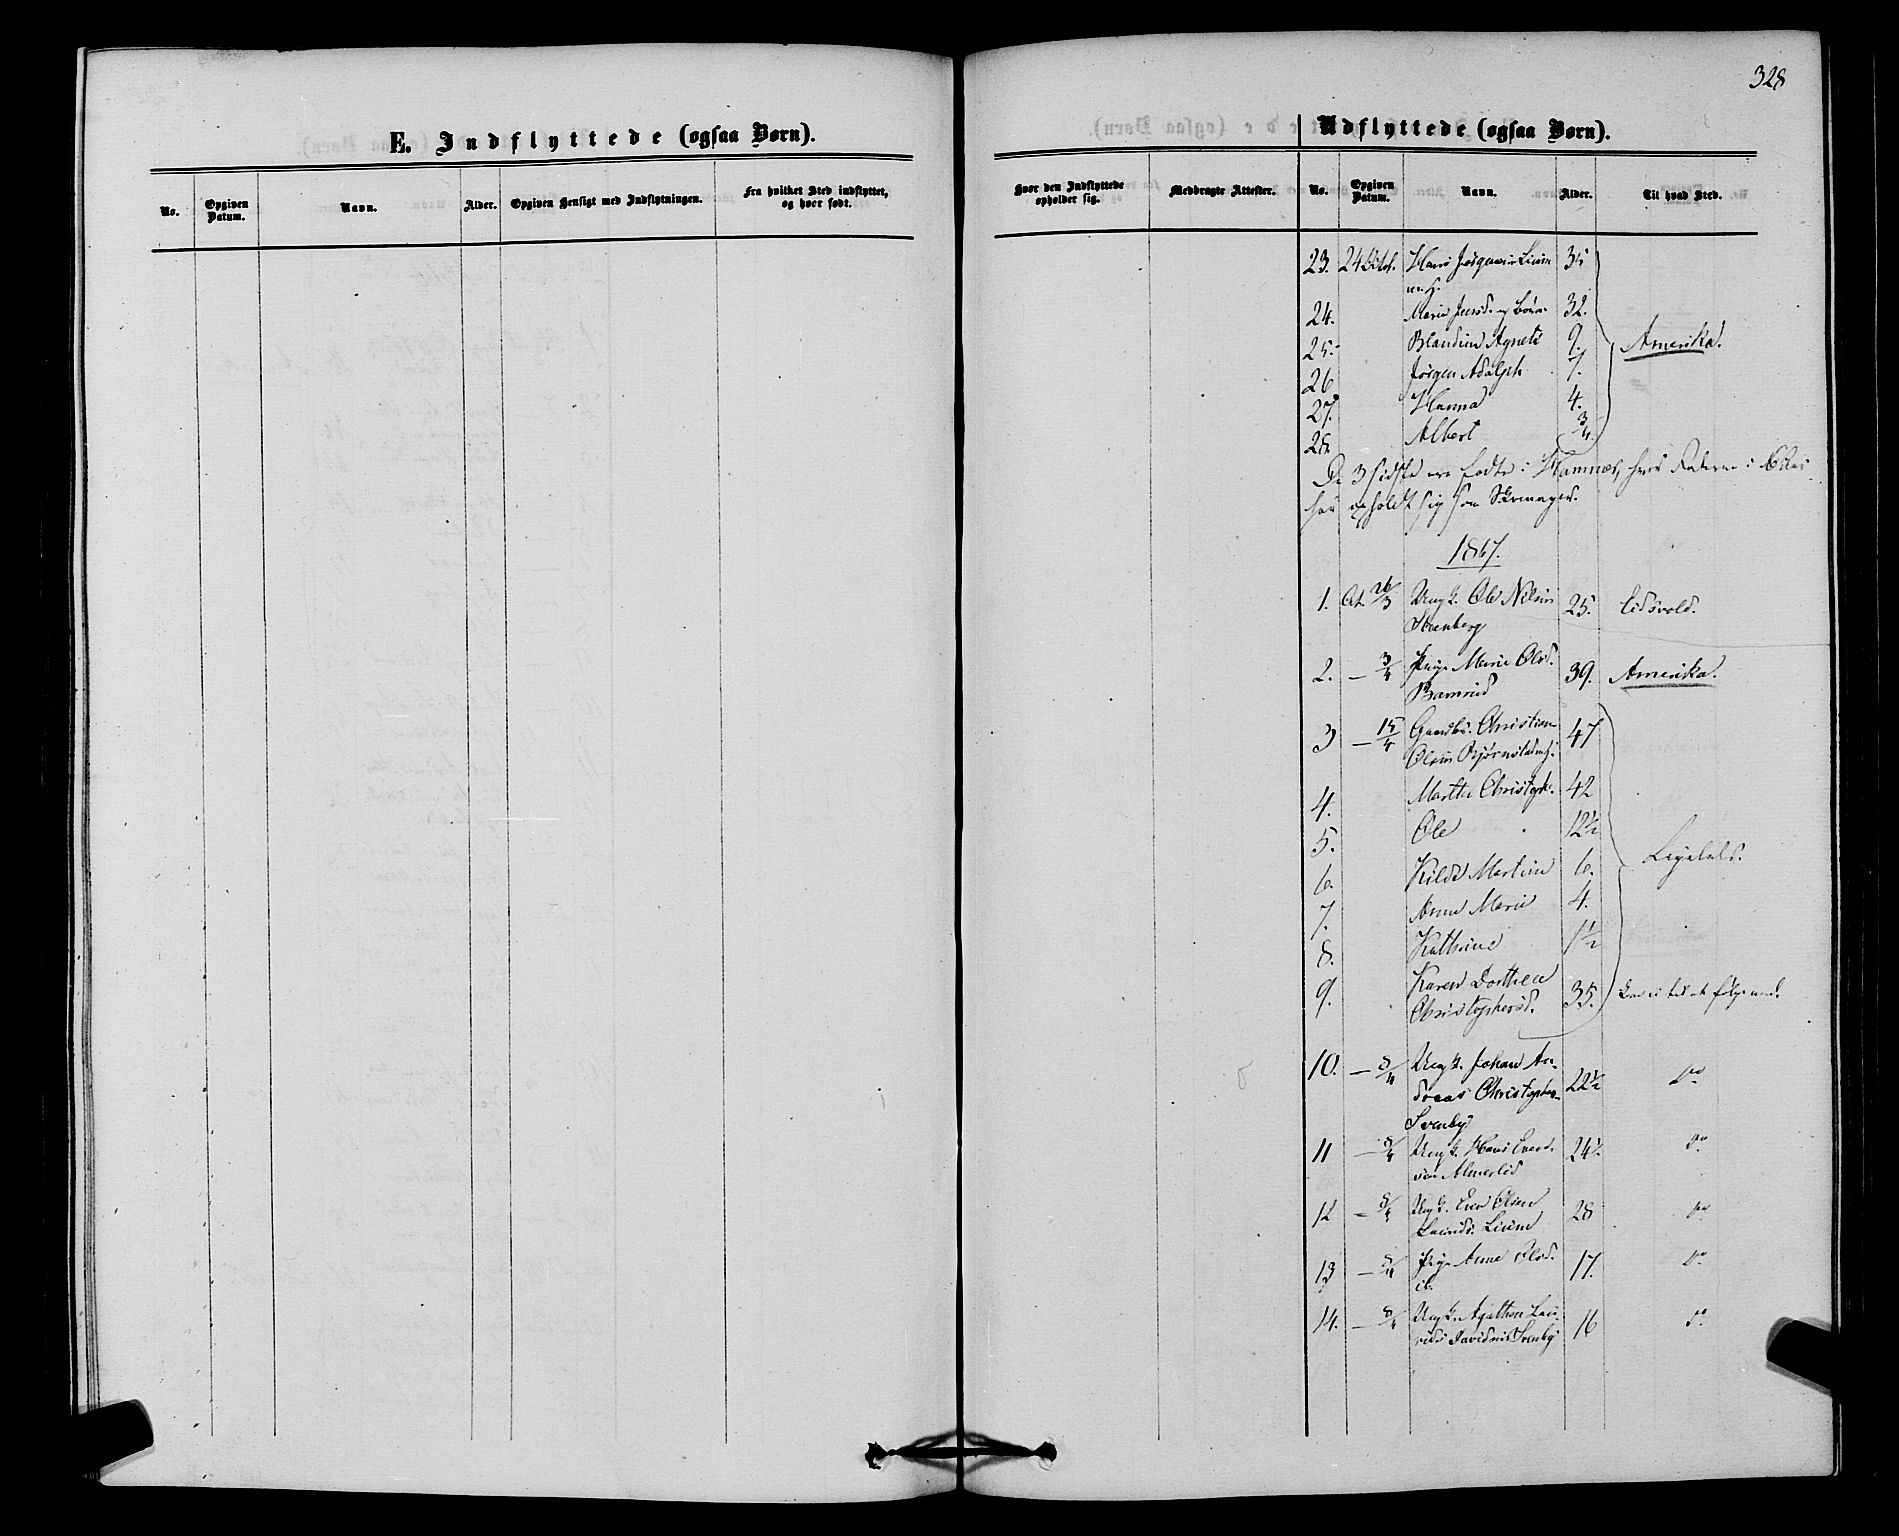 328
E. Indflyttede (ogsaa Børn).
No. Opgiven Datum. Navn. Alder. Opgiven Hensigt med Indflytningen. Fra hvilket Sted indflyttet, og hvor født.
Udflyttede (ogsaa Børn).
Hvor den Indflyttede opholder sig. Medbragte Attester. No. Opgiven Datum. Navn. Alder. Til hvad Sted.
23. 24 Hans Jørgensen 35
m. H.
24. Marie Jensd. og Børn 32.
25. Blandine Agnete 9.
Amerika.
26 Jørgen Adolph 7.
27. Hanna 4.
28. Albert 3/4.
De 3 sidste ere fødte i Hamnæs, hvor Faderen i
har opholdt sig som Skomager.
1867.
1. At. 26/3 Ungk. Ole Nilsen 25. Eidsvold.
Steenberg
2. — 3/4 Pige Marie Olsd. 39. Amerika.
3 — 15/4 Gaardbr. Christian 47
Olsen Bjørnstad m. H.
4. Marthe Christophd. 42
5. Ole 12½
Ligeledes.
6. Martine 6.
7. Anne Marie 4.
8. Kathrine 1½
9. Karen Dorthea
Christophersd. 35.
10. — 8/4 Ungk. Johan An-
dreas Christophers. 22½ do
Svenby
11 — 8/4 Ungk. Hans 24½ do
12 — 8/4 Ungk. Even Olsen 28 do
13 — 8/4 Pige Anne Olsd. 17. do
ib.
14. — 8/4 Ungk. Agathon Lau-
rids Davidsen Svenby 16 do